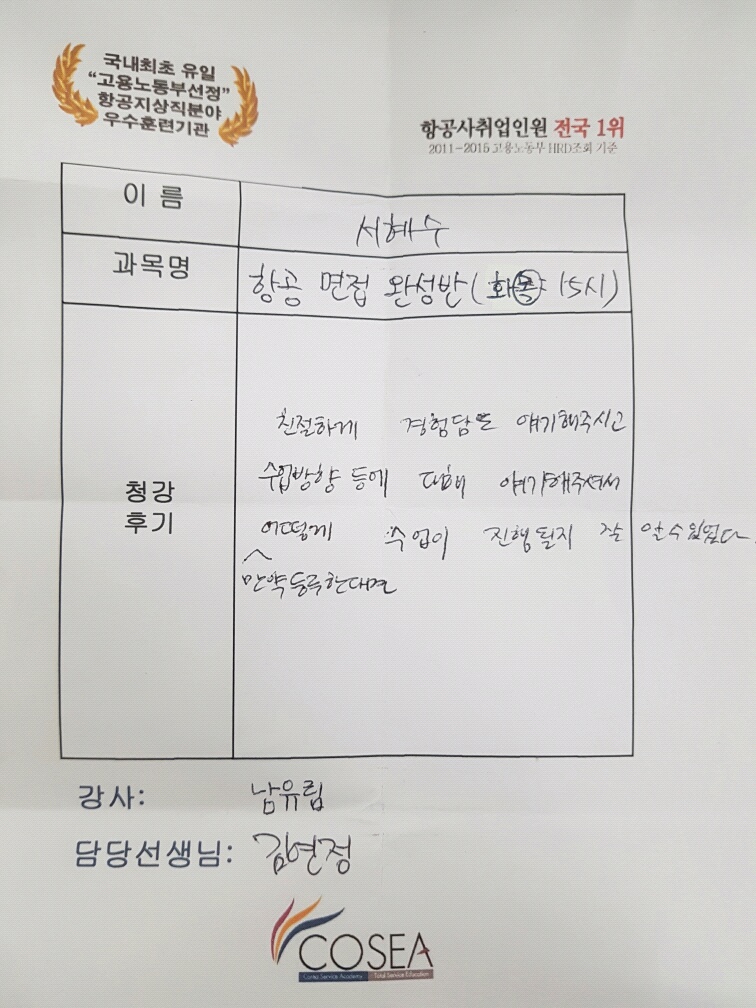 국내최초 유일
“고용노동부선정”
항공지상직분야
우수훈련기관
항공사취업인원 전국 1위
2011-2015 고용노동부 HRD조회 기준
이 름
서혜수
과목명
항공 면접 완성반 (화목 15시)
청강
후기
친절하게 경험담도 얘기해주시고
수업방향 등에 대해 얘기해주셔서
어떻게 수업이 진행될지 잘 알수있었다.
만약등록한다면
강사: 남유림
담당선생님: 김연정
COSEA
Corea Service Academy Total Service Education